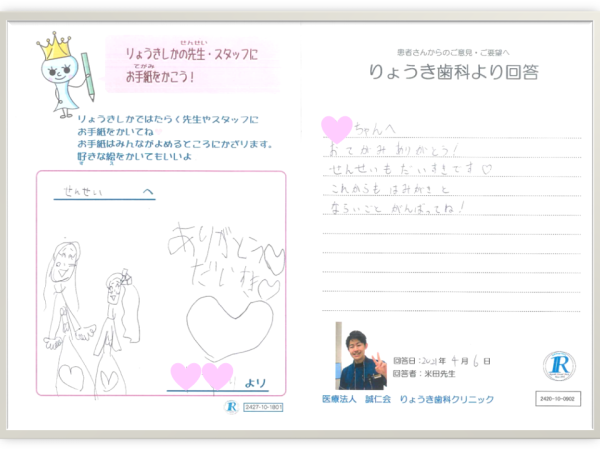 りょうきしかの先生・スタッフに
せんせい
お手紙をかこう!
てがみ
りょうきしかではたらく先生やスタッフに
お手紙をかいてね
お手紙はみんながよめるところにかざります。
好きな絵をかいてもいいよ
す え
せんせい へ
ありがとう
だい
より
R 2427-10-1801
患者さんからのご意見・ご要望へ
りょうき歯科より回答
ちゃんへ
おてがみありがとう!
せんせいもだいすきです♡
これからもはみがきと
ならいごとがんばってね!
回答日:2021年 4月 6日
回答者:米田先生
R
医療法人 誠仁会 りょうき歯科クリニック
2426-10-0902